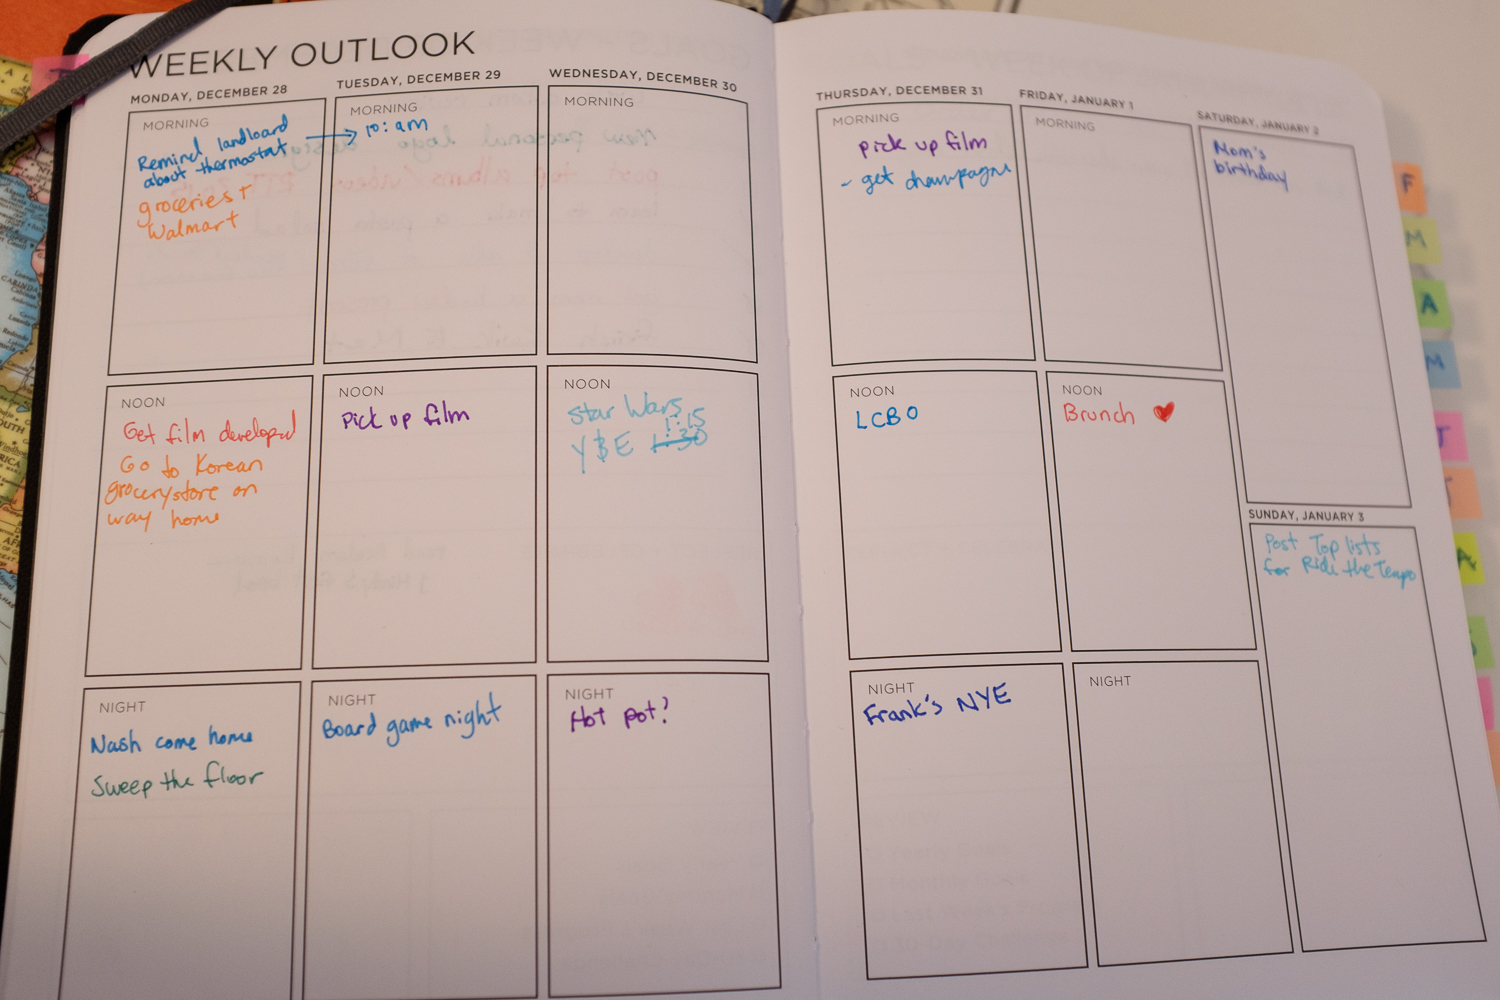 WEEKLY OUTLOOK
MONDAY, DECEMBER 28
MORNING
Remind landloard
about thermostat
groceries +
Walmart
NOON
Get film developed
Go to Korean
grocerystore on
way home
NIGHT
Nash come home
Sweep the floor
TUESDAY, DECEMBER 29
MORNING
10:am
NOON
Pick up film
NIGHT
Board game night
WEDNESDAY, DECEMBER 30
MORNING
NOON
Star Wars
1:15
Y$E 1:30
NIGHT
Hot pot?
THURSDAY, DECEMBER 31
MORNING
pick up film
- get champagne
NOON
LCBO
NIGHT
Frank's NYE
FRIDAY, JANUARY 1
MORNING
NOON
Brunch
NIGHT
SATURDAY, JANUARY 2
Mom's
birthday
SUNDAY, JANUARY 3
Post Top lists
for Ride the Tempo
F
M
A
M